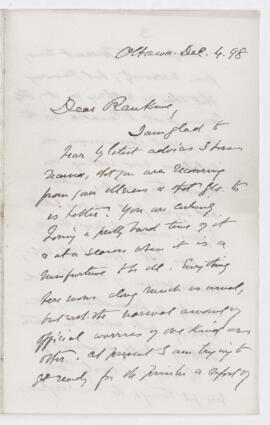 Ottawa Dec. 4. 98
Dear Rankine,
I am glad to
hear by latest advices I have
received, that you are recovering
from your illness & that Geo. too
is better. You are certainly
having a pretty hard time of it
& at a season when it is a
misfortune to be ill. Everything
here moves along much as usual,
but with the normal amount of
official worries of one kind or
other. At present I am trying to
get ready for the printer a report of